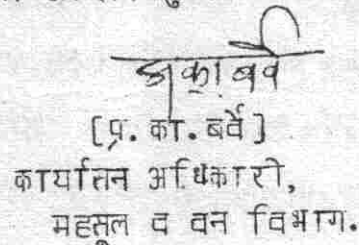 प्र का बर्वे
[प्र. का. बर्वे]
कार्यासन अधिकारी,
महसूल व वन विभाग.